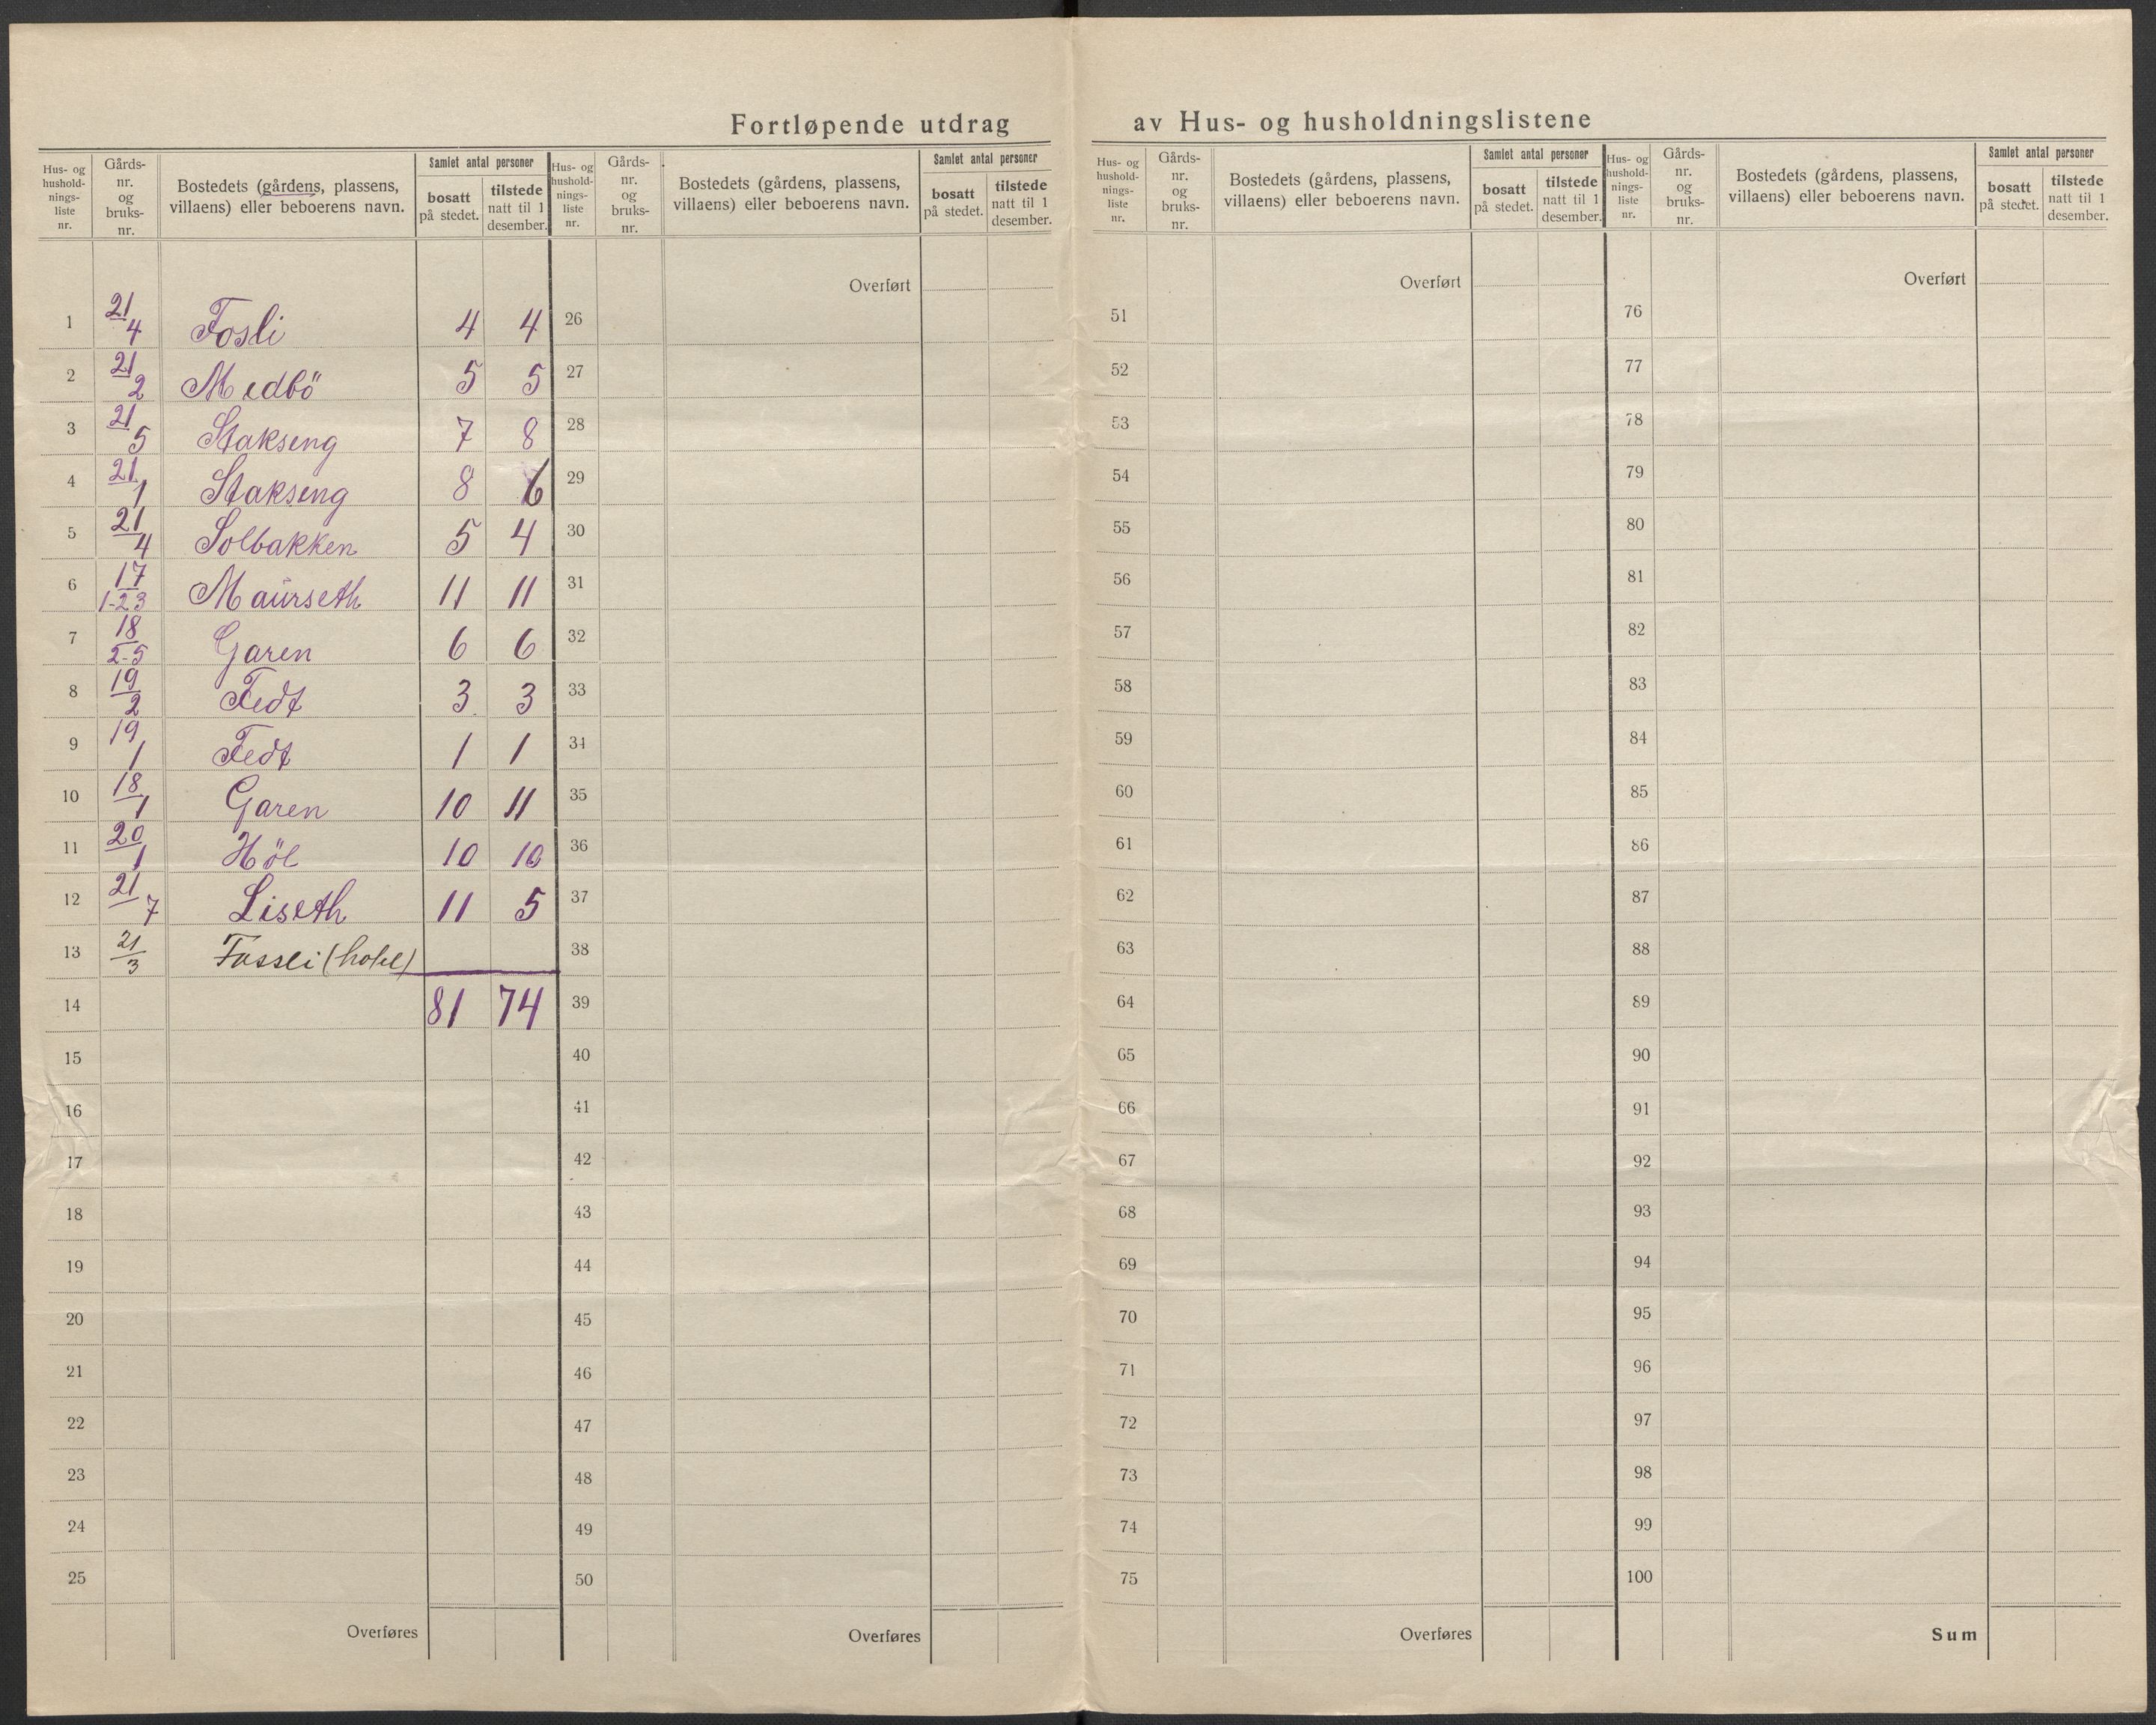 Fortløpende utdrag av Hus- og husholdningslistene
Hus- og hushold-nings-liste nr. Gårds-nr. og bruks-nr. Bostedets (gårdens, plassens, villaens) eller beboerens navn. Samlet antal personer bosatt på stedet. tilstede natt til 1 desember.
1 21/4 Fosli 4 4
2 21/2 Medbö 5 5
3 21/5 Stakseng 7 8
4 21/1 Stakseng 8 6
5 21/4 Solbakken 5 4
6 17/1-23 Maurseth 11 11
7 18/2-5 Garen 6 6
8 19/2 Fedt 3 3
9 19/1 Fedt 1 1
10 18/1 Garen 10 11
11 20/1 Höl 10 10
12 21/7 Liseth 11 5
13 21/3 Fossli (hotel)
14 81 74
15
16
17
18
19
20
21
22
23
24
25
Overføres
Hus- og hushold-nings-liste nr. Gårds-nr. og bruks-nr. Bostedets (gårdens, plassens, villaens) eller beboerens navn. Samlet antal personer bosatt på stedet. tilstede natt til 1 desember.
Overført
26
27
28
29
30
31
32
33
34
35
36
37
38
39
40
41
42
43
44
45
46
47
48
49
50
Overføres
Hus- og hushold-nings-liste nr. Gårds-nr. og bruks-nr. Bostedets (gårdens, plassens, villaens) eller beboerens navn. Samlet antal personer bosatt på stedet. tilstede natt til 1 desember.
Overført
51
52
53
54
55
56
57
58
59
60
61
62
63
64
65
66
67
68
69
70
71
72
73
74
75
Overføres
Hus- og hushold-nings-liste nr. Gårds-nr. og bruks-nr. Bostedets (gårdens, plassens, villaens) eller beboerens navn. Samlet antal personer bosatt på stedet. tilstede natt til 1 desember.
Overført
76
77
78
79
80
81
82
83
84
85
86
87
88
89
90
91
92
93
94
95
96
97
98
99
100
Sum